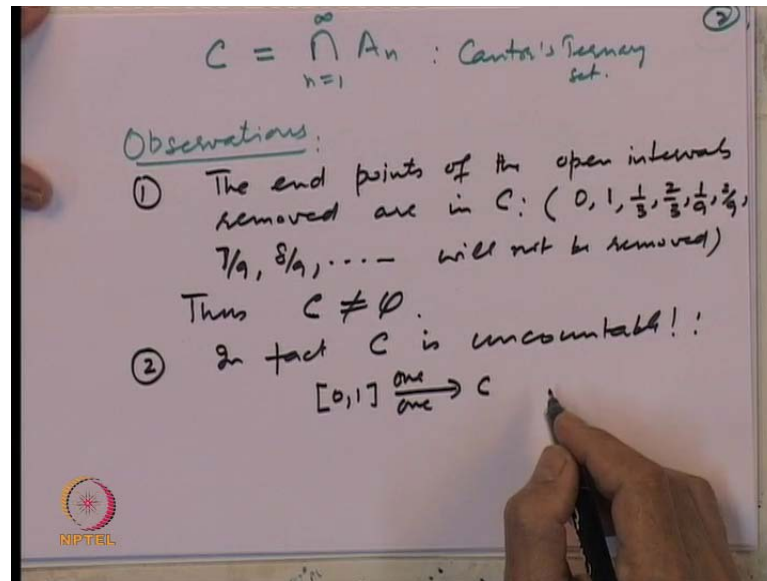 ②
C = ∞ ⋂ n=1 An : Cantor's Ternary set.
Observations:
① The end points of the open intervals
removed are in C: ( 0, 1, 1/3, 2/3, 1/9, 2/9,
7/9, 8/9, ..... will not be removed)
Thus C ≠ φ.
② In fact C is uncountable!!:
[0,1] one one → C
NPTEL